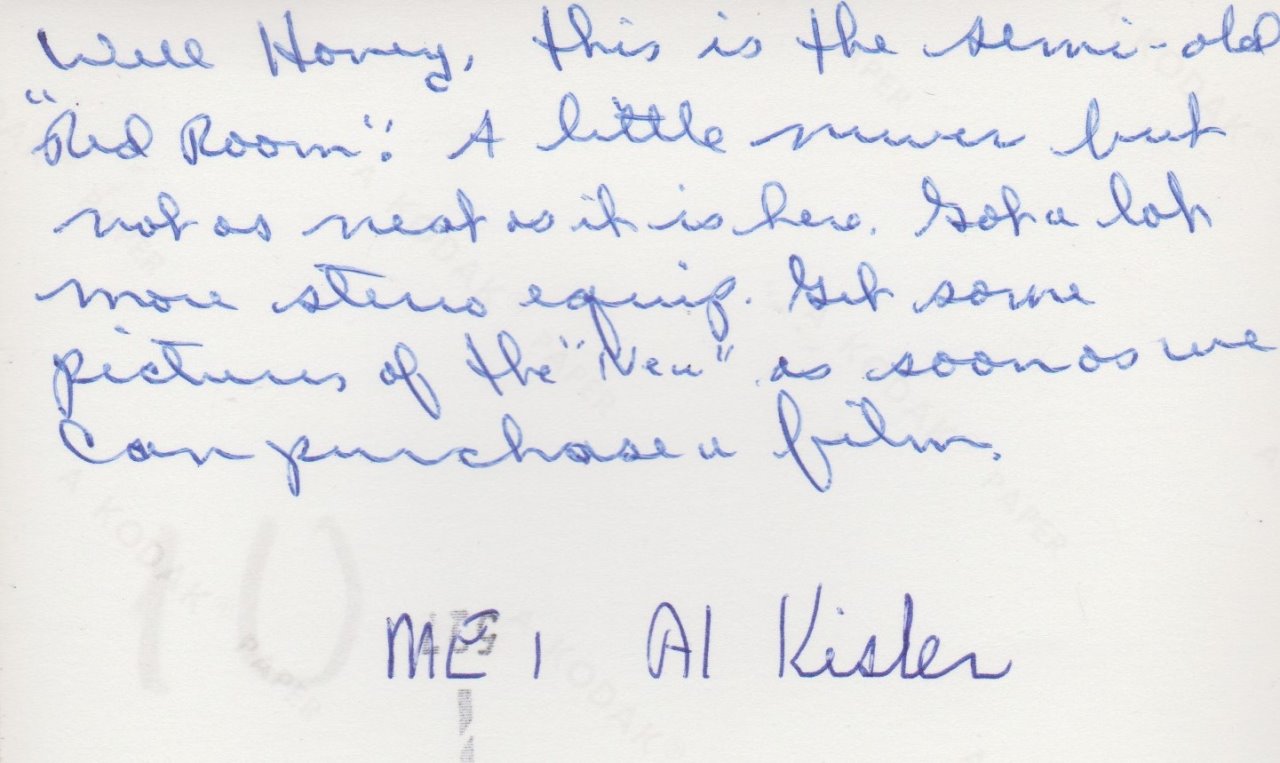 Well Honey, this is the semi-old
"Red Room". A little newer but
not as neat as it is here. Got a lot
more stereo equip. Get some
pictures of the "New" as soon as we
can purchase a film.
ME, Al Kisler
KODAK PAPER